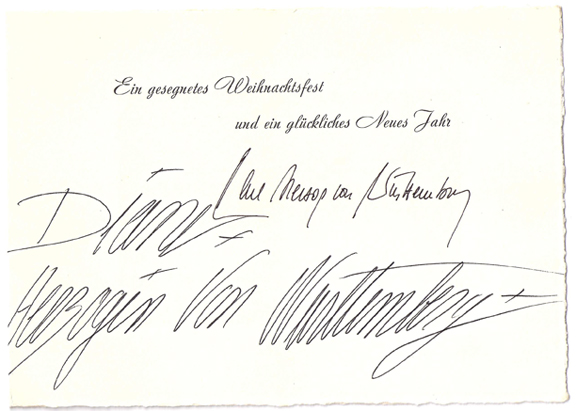 Ein gesegnetes Weihnachtsfest
und ein glückliches Neues Jahr
Carl Herzog von Württemberg
Diane
Herzogin von Württemberg